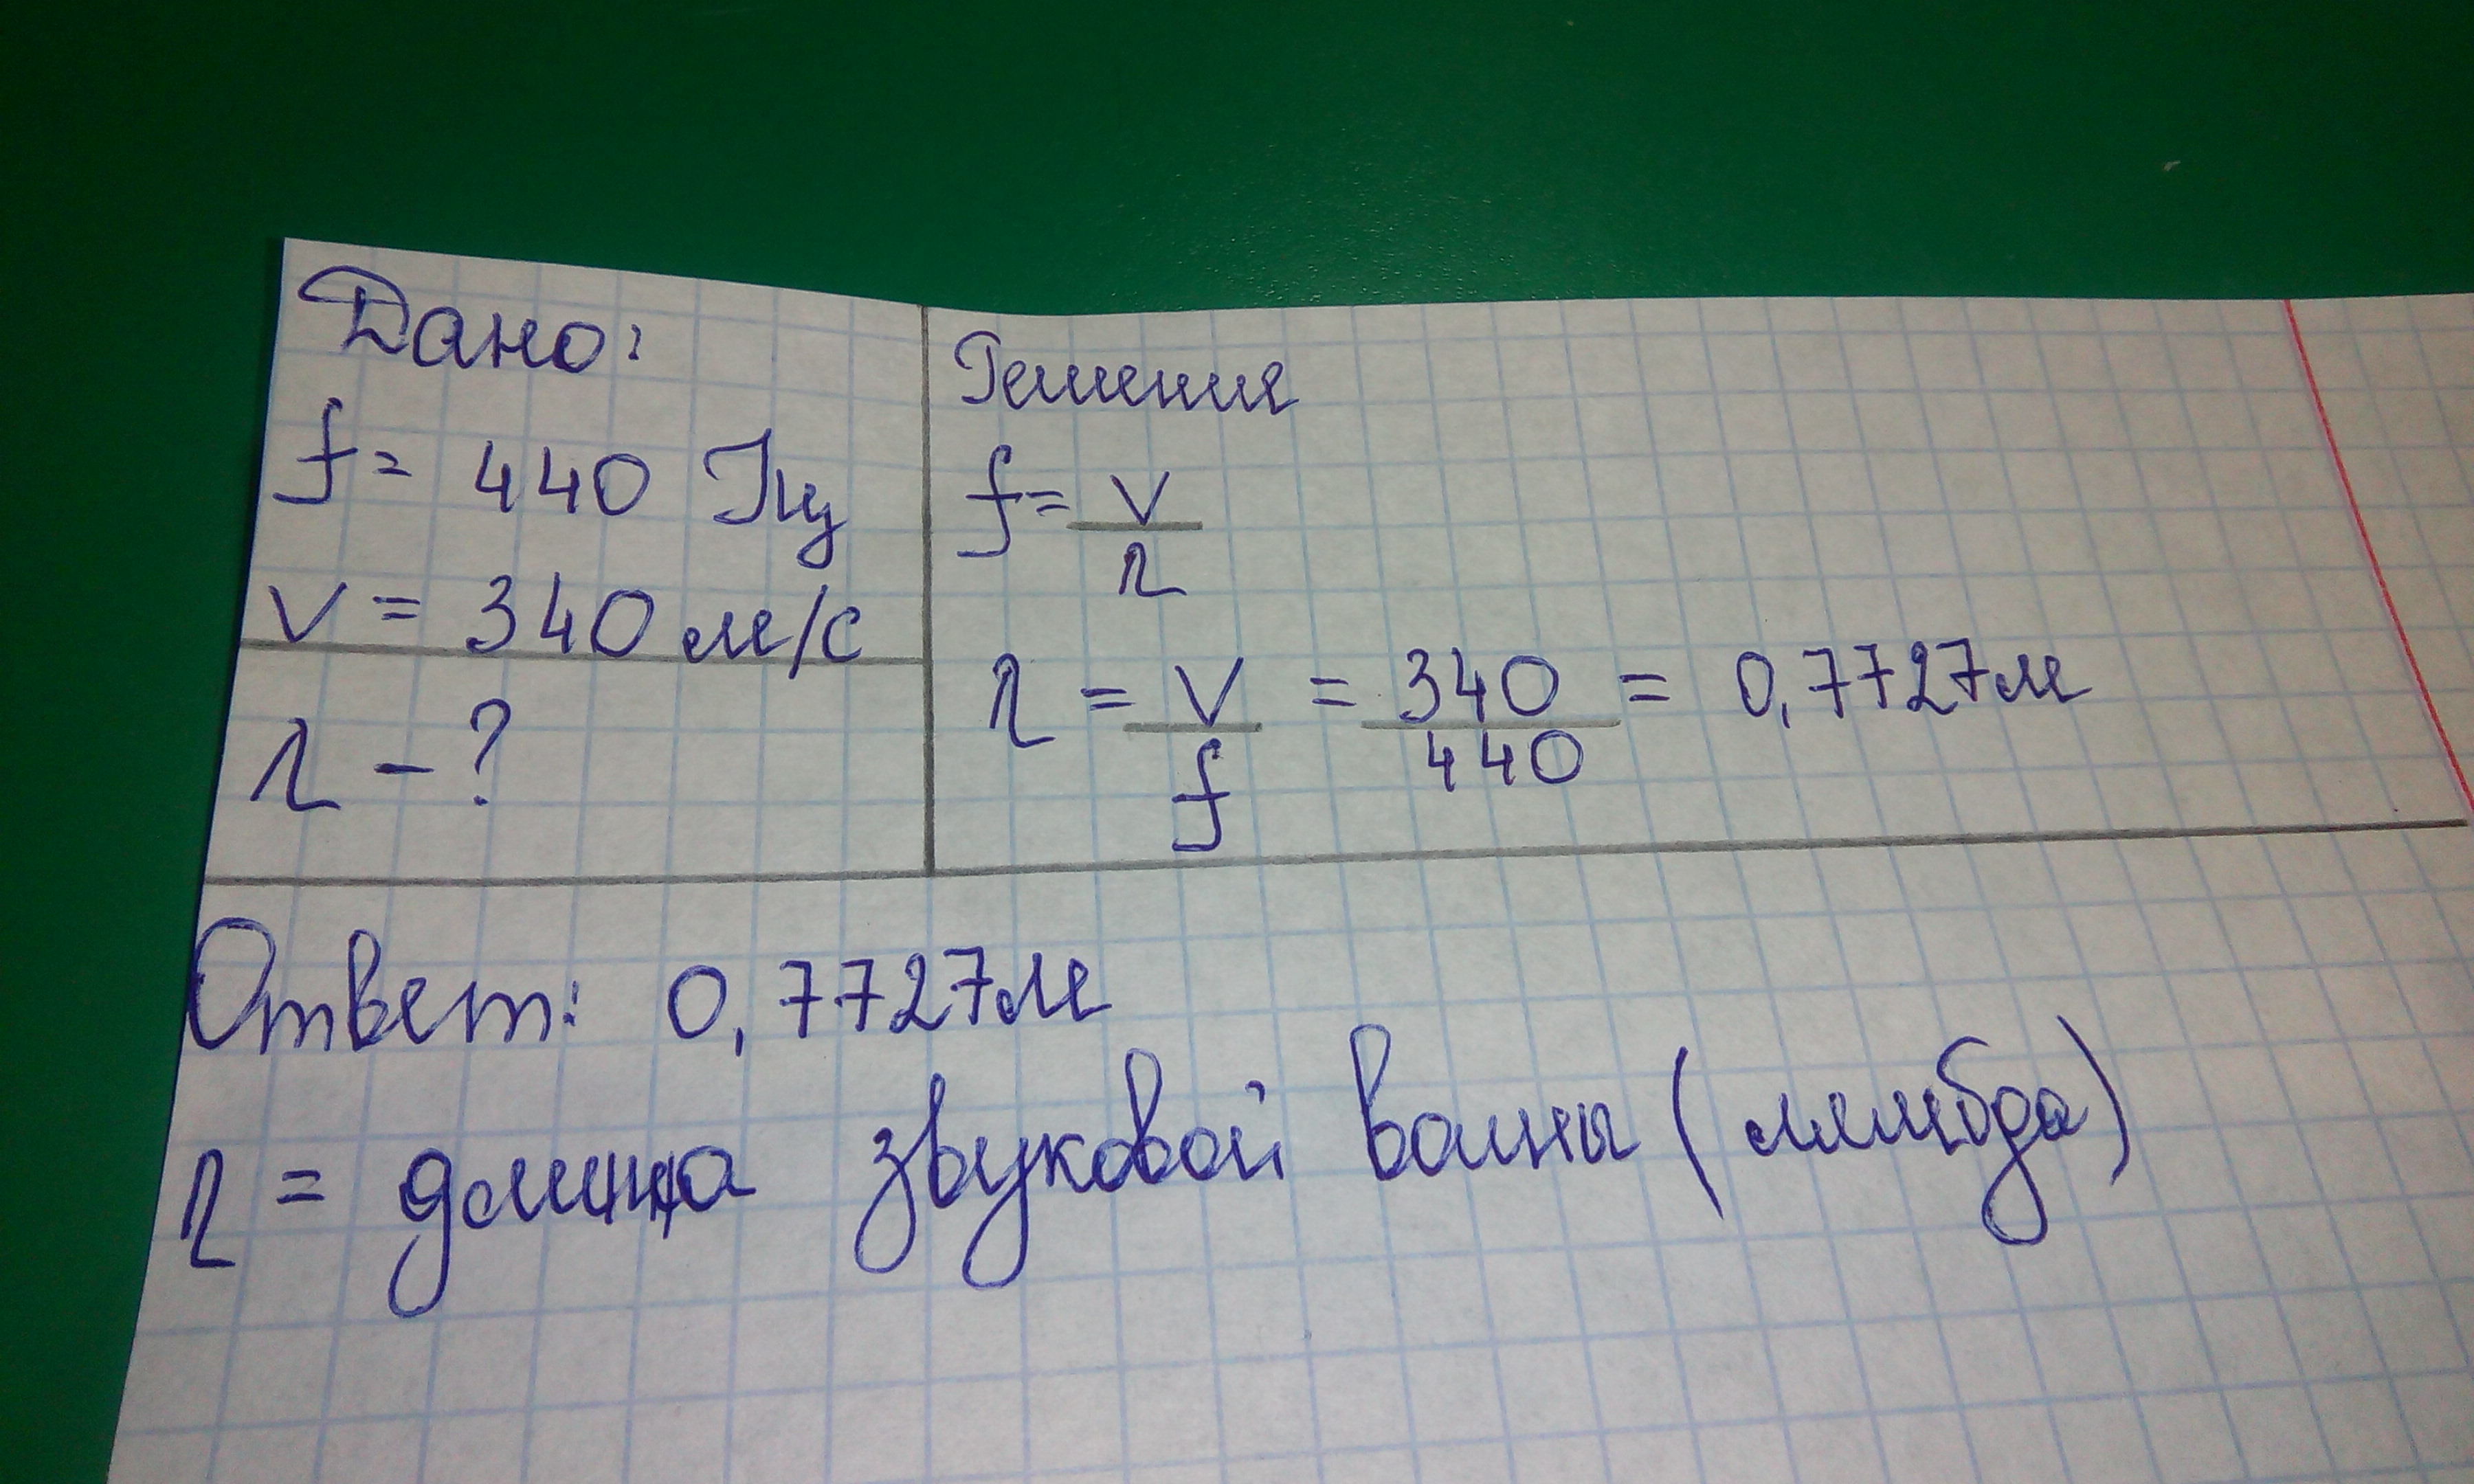 Дано:
f = 440 Гц
v = 340 м/с
λ - ?
Решения
f = v / λ
λ = v / f = 340 / 440 = 0,7727м
Ответ: 0,7727м
λ = длина звуковой волны (лямбда)